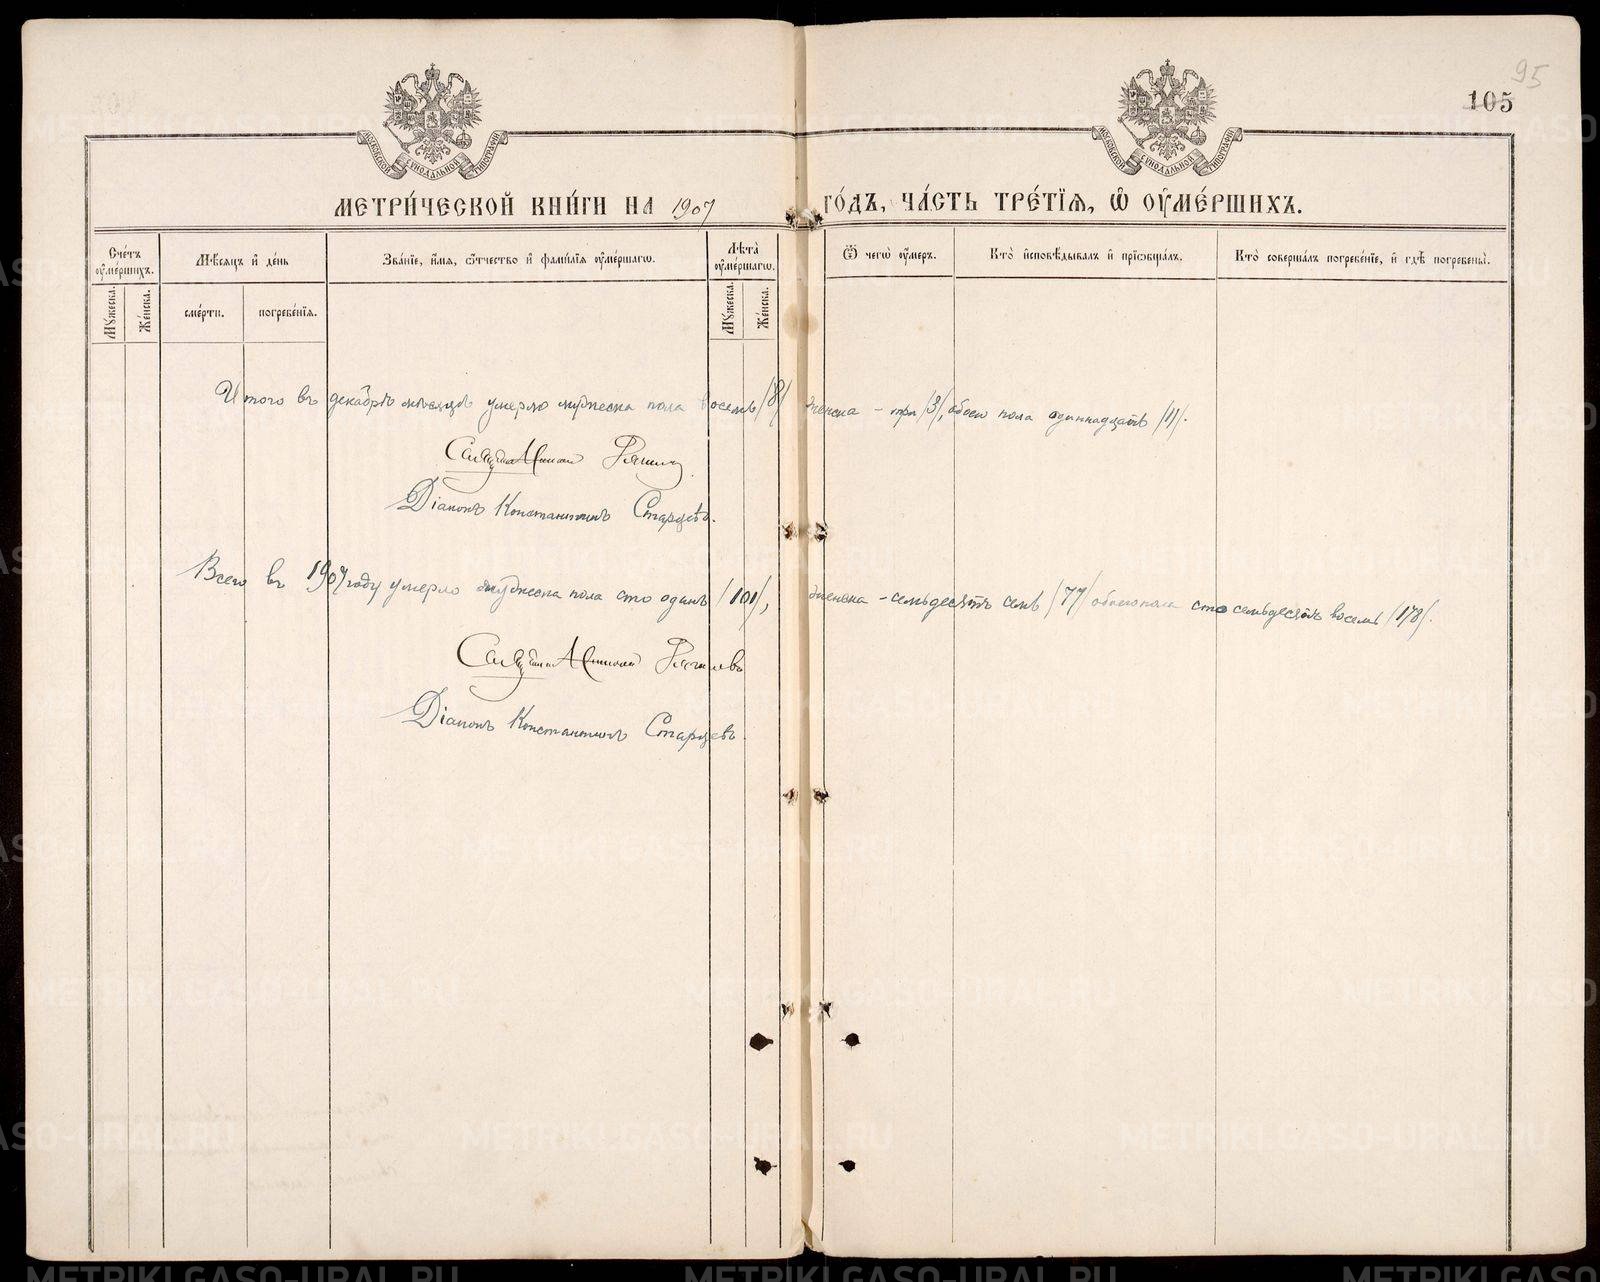 95
105
МОСКОВСКОЙ СѴНОДАЛЬНОЙ ТИПОГРАФІИ
МОСКОВСКОЙ СѴНОДАЛЬНОЙ ТИПОГРАФІИ
МЕТРИ́ЧЕСКОЙ КНИ́ГИ НА 1907 ГО́ДЪ, ЧА́СТЬ ТРЕ́ТЇѦ, Ѡ҆ ОУ҆МЕ́РШИХЪ.
Сче́тъ оу҆ме́ршихъ.
Мꙋ́жеска.
Же́нска.
Мѣ́сѧцъ и҆ де́нь
сме́рти.
погребе́нїѧ.
Зва́нїе, и҆́мѧ, ѻ҆́тчество и҆ фами́лїѧ оу҆ме́ршагѡ.
Лѣ́та оу҆ме́ршагѡ.
Мꙋ́жеска.
Же́нска.
Ѿ чегѡ̀ оу҆́меръ.
Кто̀ и҆сповѣ́дывалъ и҆ прїѡбща́лъ.
Кто̀ соверша́лъ погребе́нїе, и҆ гдѣ̀ погребены̀.
Итого въ декабрѣ мѣсяцѣ умерло мужеска пола восемь /8/ женска – три /3/, обоего пола одиннадцать /11/.
Діаконъ Константинъ Старцевъ.
Всего въ 1907 году умерло мужеска пола сто одинъ /101/, женска – семьдесятъ семь /77/ обоего пола сто семьдесятъ восемь /178/.
Діаконъ Константинъ Старцевъ.
METRIKI.GASO-URAL.RU